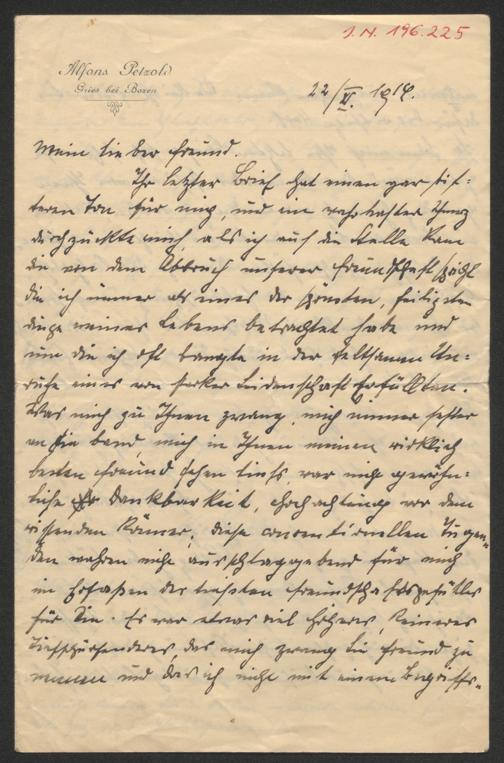 J. N. 196.225
Alfons Petzold
Gries bei Bozen
22/VI. 1914.
Mein lieber Freund.
Ihr letzter Brief hat einen gar bit-
teren Ton für mich, und ein wahrhafter Schmerz
durchzuckte mich, als ich auf die Stelle kam
die von dem Abbruch unserer Freundschaft spricht
die ich immer als eines der schönsten, heiligsten
Dinge meines Lebens betrachtet habe und
um die ich oft bangte in der seltsamen Un-
ruhe eines von starker Leidenschaft Erfüllten.
Was mich zu Ihnen zwang, mich immer fester
an Sie band, mich in Ihnen meinen wirklich
besten Freund sehen ließ, war nicht gewöhn-
liche Dankbarkeit, Hochachtung vor dem
wissenden Könner, diese conventionellen Tugen-
den waren nicht ausschlaggebend für mich
im Erfassen des tiefsten Freundschaftsgefühles
für Sie. Es war etwas viel Höheres, Reineres
Tiefschürfenderes das mich zwang Sie Freund zu
nennen und das ich nicht mit einem Begriffs-